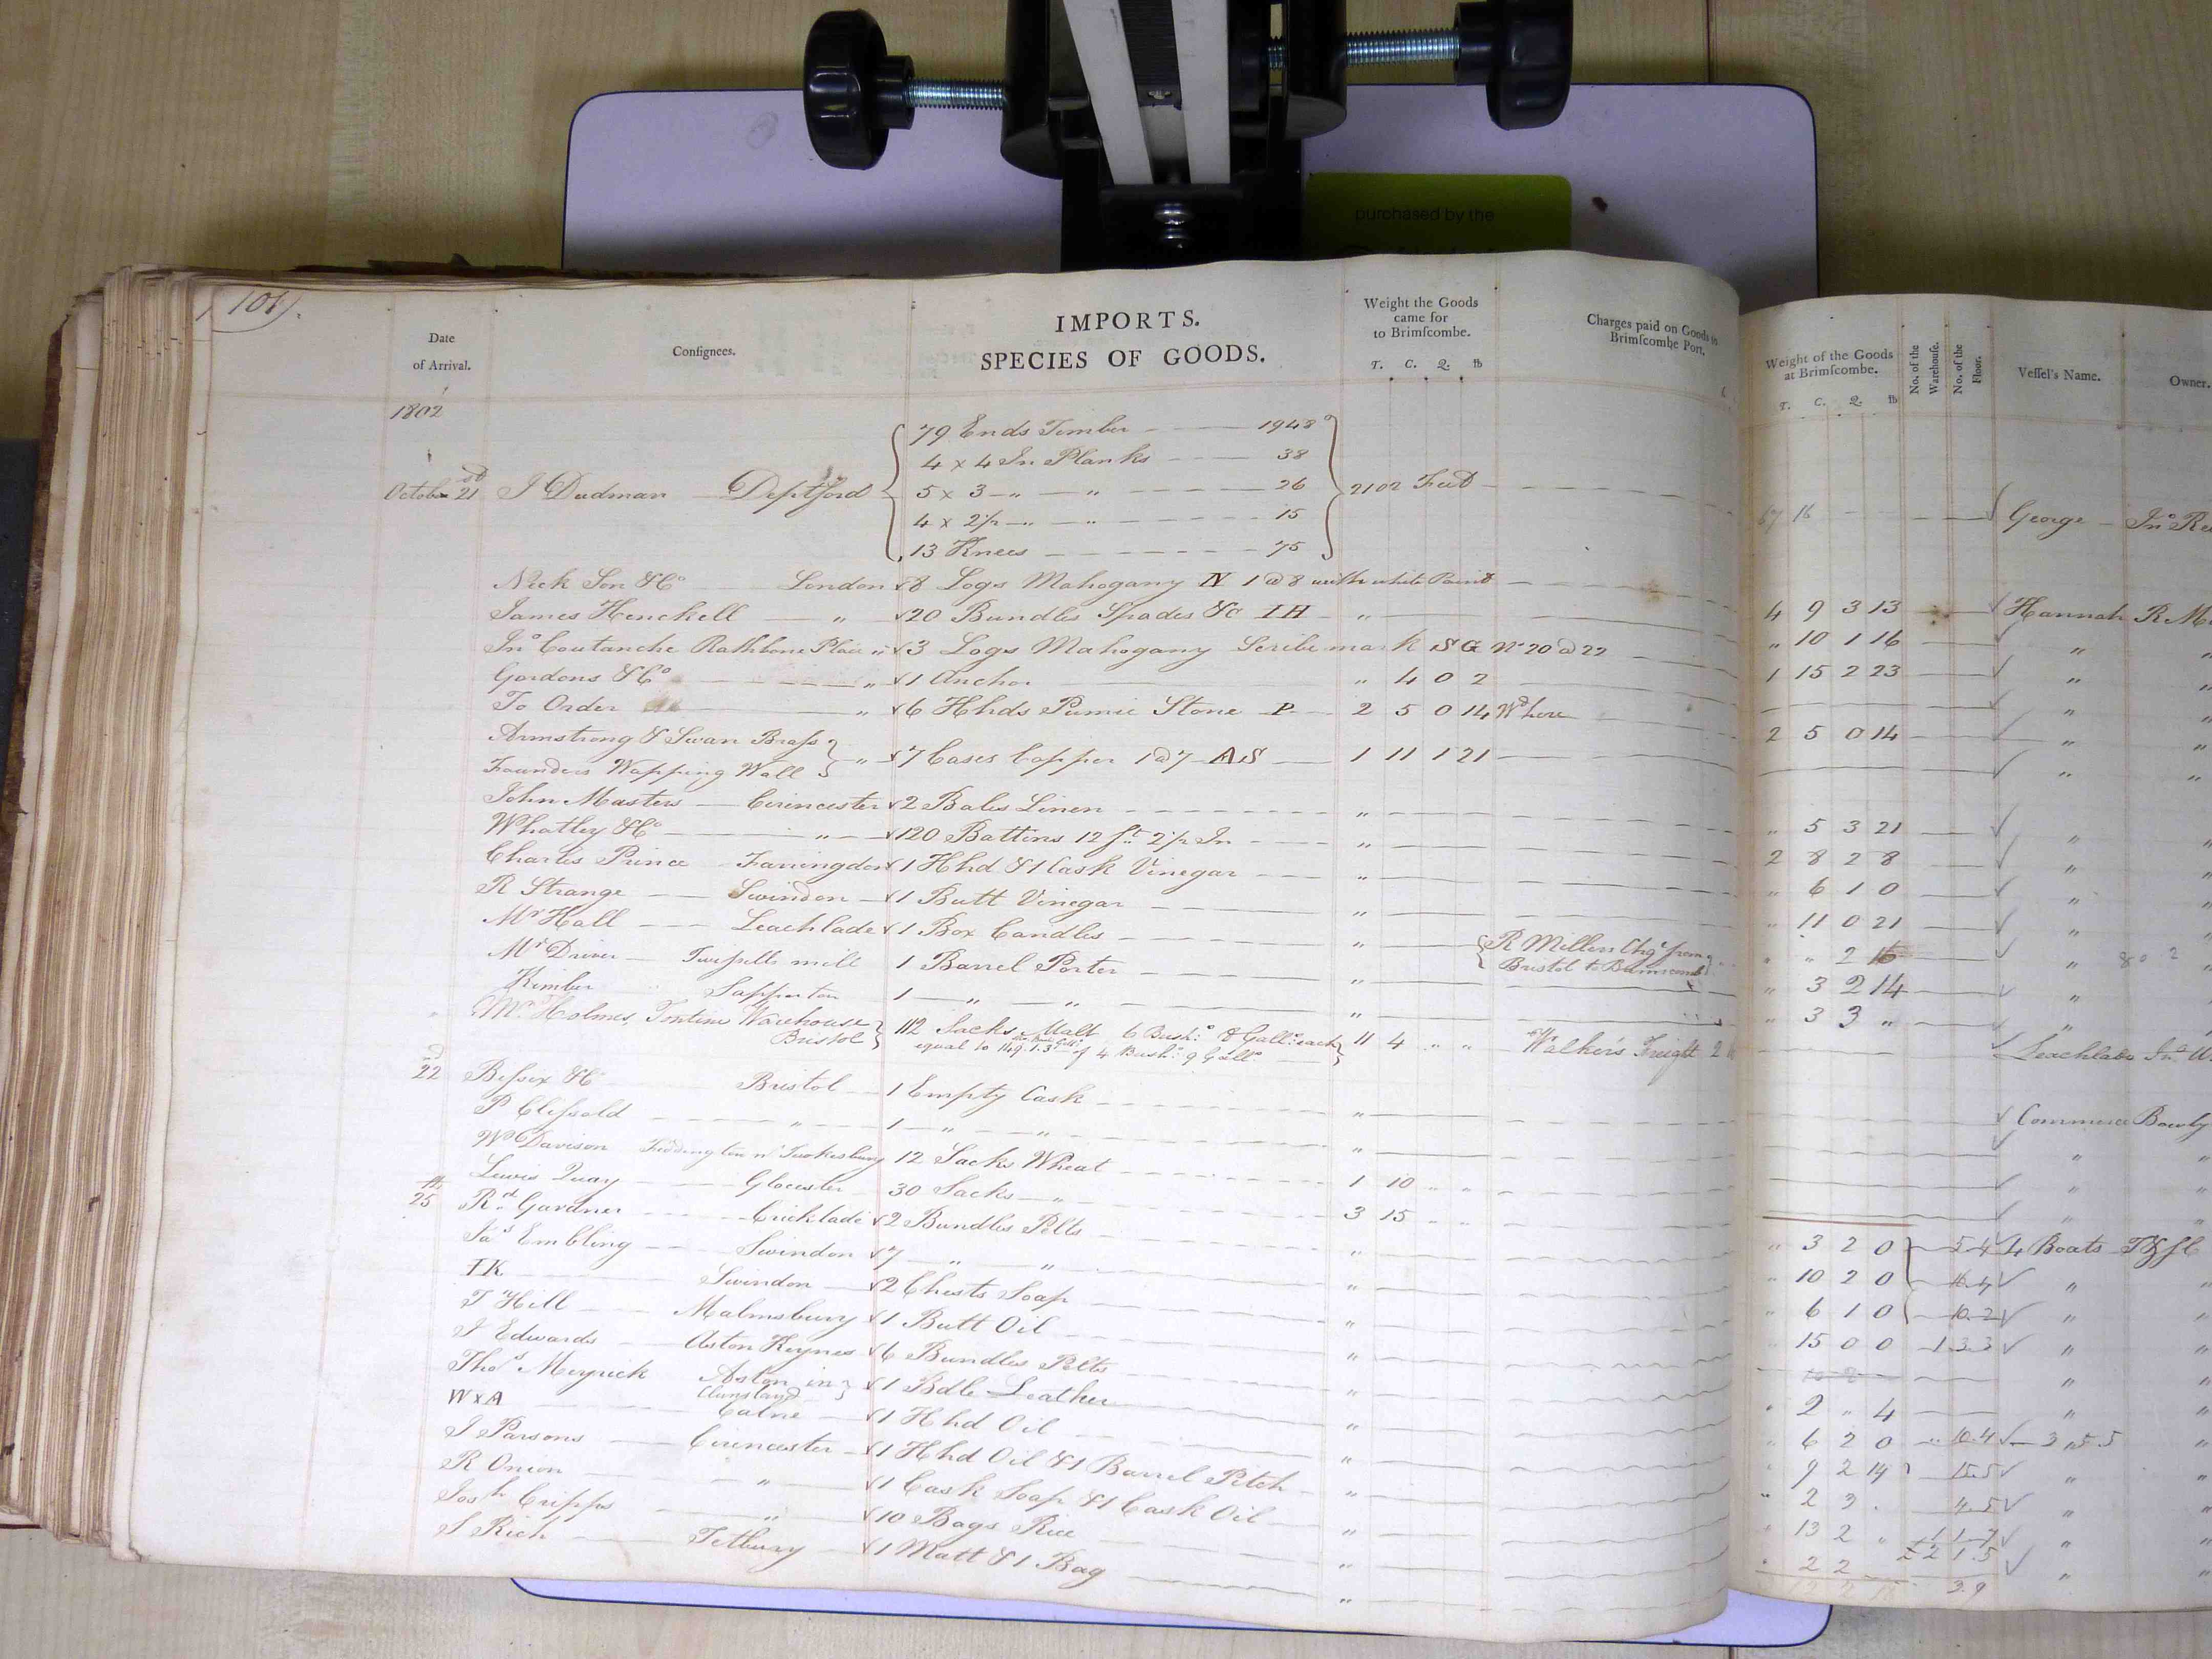 purchased by the
101
Date
of Arrival.
Consignees.
IMPORTS.
SPECIES OF GOODS.
Weight the Goods
came for
to Brimscombe.
T. C. Q. lb
Charges paid on Goods to
Brimscombe Port.
Weight of the Goods
at Brimscombe.
T. C. Q. lb
No. of the
Warehouse.
No. of the
Floor.
Vessel's Name.
Owner.
1802
79 Ends Timber 1948
4 x 4 In Planks 38
October 21st J Dudman Deptford 5 x 3 " " 26 2102 Feet 67 16 George Jno
4 x 2 1/2 " " 15
13 Knees 75
Nick Son & Co London 8 Logs Mahogany N 1 @ 8 with white Paint 4 9 3 13 Hannah R
James Henckell " 20 Bundles Spades &c IH " " 10 1 16 " "
Jno Coutanche Rathbone Place " 3 Logs Mahogany Scribe mark SG No 20 @ 22 1 15 2 23 " "
Gordons & Co " 1 Anchor " 4 0 2 " "
To Order " 6 Hhds Pumic Stone P 2 5 0 14 Wd here 2 5 0 14 " "
Armstrong & Swan Brass
Founders Wapping Wall " 7 Cases Copper 1 @ 7 AS 1 11 1 21 " "
John Masters Cirencester 2 Bales Linen " " 5 3 21 "
Whatley & Co " 120 Battins 12 ft 2 1/2 In " 2 8 2 8 " "
Charles Prince Farringdon 1 Hhd & 1 Cask Vinegar " " 6 1 0 " "
R Strange Swindon 1 Butt Vinegar " " 11 0 21 " "
Mr Hall Leachlade 1 Box Candles " R Millers Chgs from " " 2 16 "
Mr Driver Twissells mill 1 Barrel Porter " Bristol to Brimscomb " 3 2 14 "
Kimber Sapperton 1 " " " " 3 3 " "
Mr Holmes, Tontine Warehouse
Bristol 112 Sacks Malt 6 Bush: 8 Gall: sack 11 4 " " Walker's Freight Leachlade Jno
equal to 149.1.3 of 4 Bush: 9 Gall:
22nd Bessix & Co Bristol 1 Empty Cask " Commerce Bowly
P Clissold " 1 " " " " "
Wm Davison Teddington nr Tewkesbury 12 Sacks Wheat 1 10 " " " "
Lewis Quay Glocester 30 Sacks " 3 15 " " " "
25th Rd Gardner Cricklade 2 Bundles Pelts " " 3 2 0 5 4 4 Boats
Jas Embling Swindon 7 " " " " 10 2 0 "
IK Swindon 2 Chests Soap " " 6 1 0 10.2 " "
T Hill Malmsbury 1 Butt Oil " " 15 0 0 1 3 3 " "
J Edwards Aston Keynes 6 Bundles Pelts " " "
Thos Meyrick Aston in
1 Bdle Leather " " 2 " 4 " "
W x A Calne 1 Hhd Oil " " 6 2 0 10.4 "
J Parsons Cirencester 1 Hhd Oil & 1 Barrel Pitch " " 9 2 14 15.5 " "
R Orson " 1 Cask Soap & 1 Cask Oil " " 2 3 4.5 " "
Josh Cripps " 10 Bags Rice " " 13 2 " " "
S Rich Tetbury 1 Matt & 1 Bag " " 2 2 3.9 " "